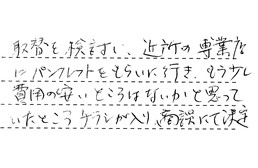 取替を検討い、近所の専業店
にパンフレットをもらいに行き、もう少し
費用の安いところはないかと思って
いたところチラシが入り、商談にて決定